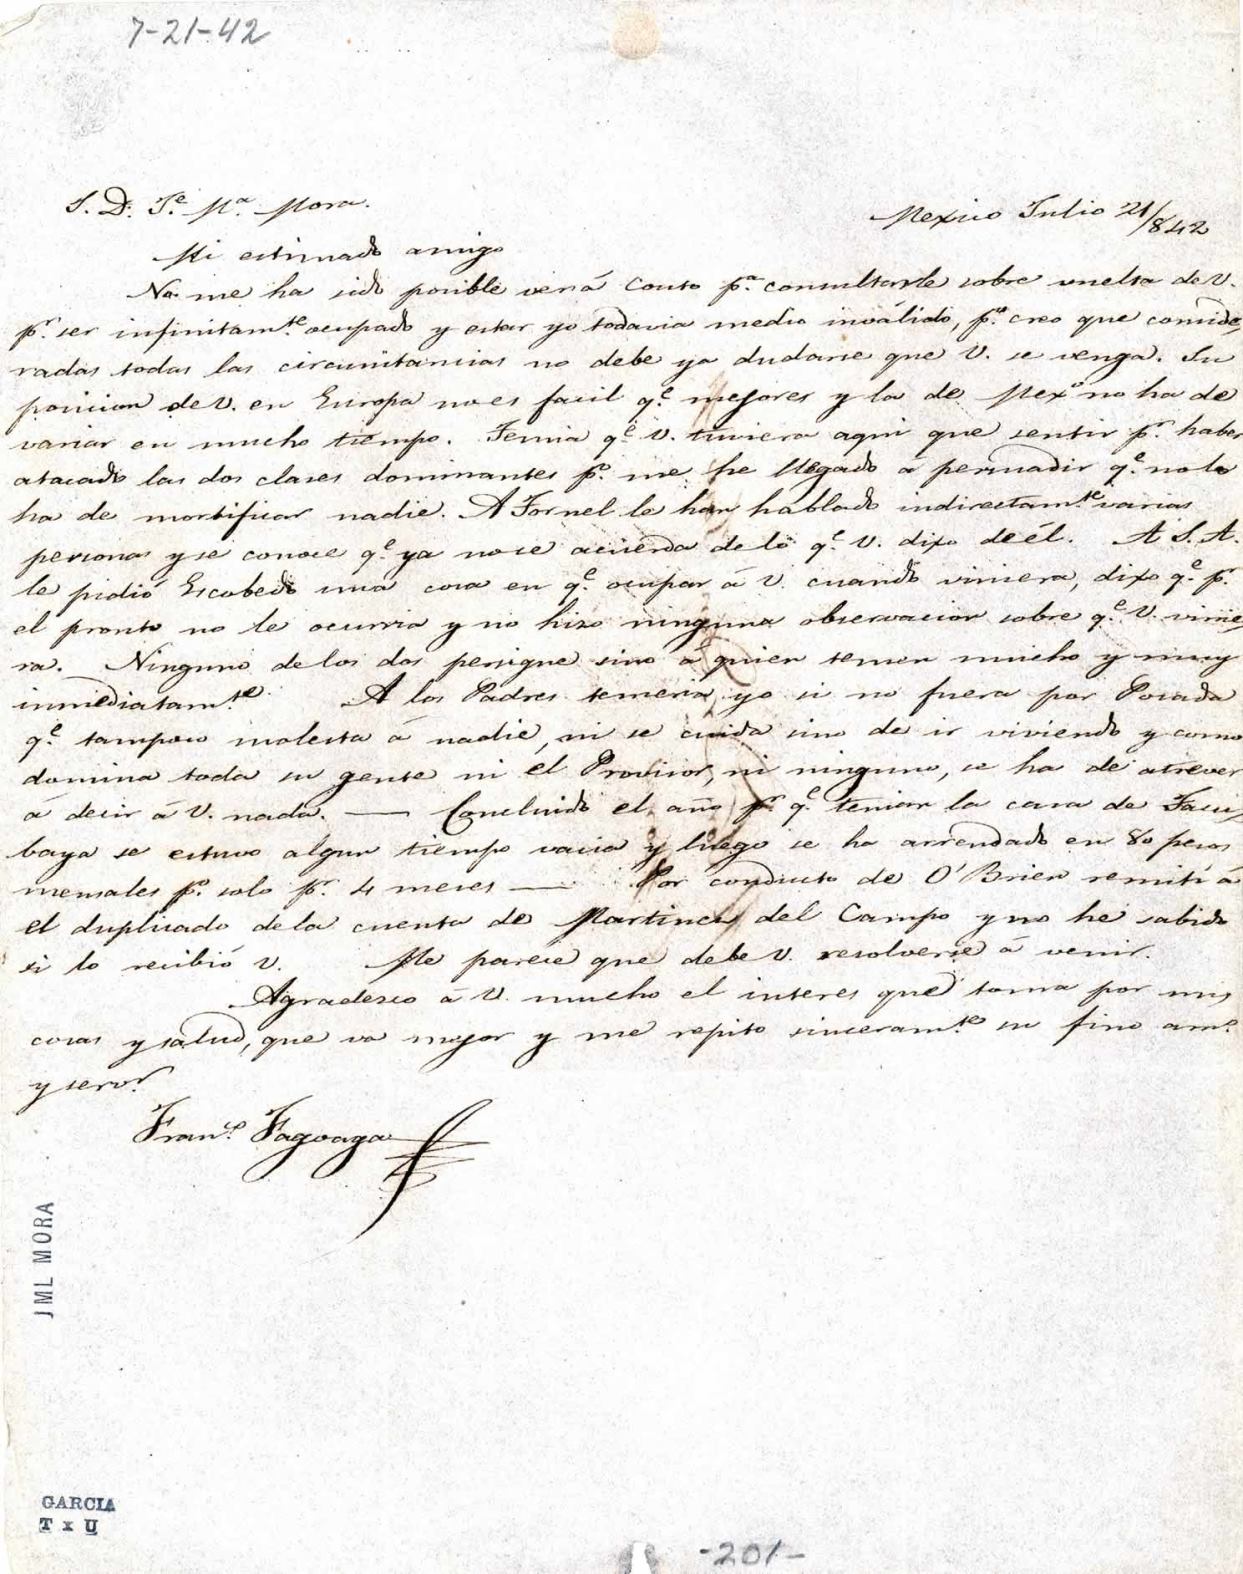 7-21-42
S. D. Je. Ma. Mora.
Mexico Julio 21/842
Mi estimado amigo
No me ha sido posible ver á Couto pa. consultarle sobre vuelta de V.
pr. ser infinitamte. ocupado y estar yo todavia medio inválido, po. creo que conside,
radas todas las circunstancias no debe ya dudarse que V. se venga. Su
posicion de V. en Europa no es facil qe. mejores y la de Mexo. no ha de
variar en mucho tiempo. Temia qe. V. tuviera aqui que sentir pr. haber
atacado las dos clases dominantes po. me he llegado a persuadir qe. no lo
ha de mortificar nadie. A Tornel le han hablado indirectamte. varias
personas y se conoce qe. ya no se acuerda de lo qe. V. dixo de él. A S. A.
le pidió Escobedo una cosa en qe. ocupar á V. cuando viniera, dixo qe. pr.
el pronto no le ocurria y no hizo ninguna observacion sobre qe. V. vinie,
ra. Ninguno de los dos persigue sino á quien temen mucho y muy
inmediatamte. A los Padres temeria yo si no fuera por Posada
qe. tampoco molesta á nadie, ni se cuida sino de ir viviendo y como
domina toda su gente ni el Provisor, ni ninguno, se ha de atrever
á decir á V. nada. — Concluido el año pr. qe. tenian la casa de Tacu,
baya se estuvo algun tiempo vacia y luego se ha arrendado en 80 pesos
mensales po. solo pr. 4 meses — Por conducto de O'Brien remiti á
el duplicado de la cuenta de Martinez del Campo y no he sabido
si lo recibió V. Me parece que debe V. resolverse á venir.
Agradesco á V. mucho el interes que toma por mis
cosas y salud, que va mejor y me repito sinceramte. su fino amo.
y servr.
Franco. Fagoaga
JML MORA
GARCIA
T x U
-201-